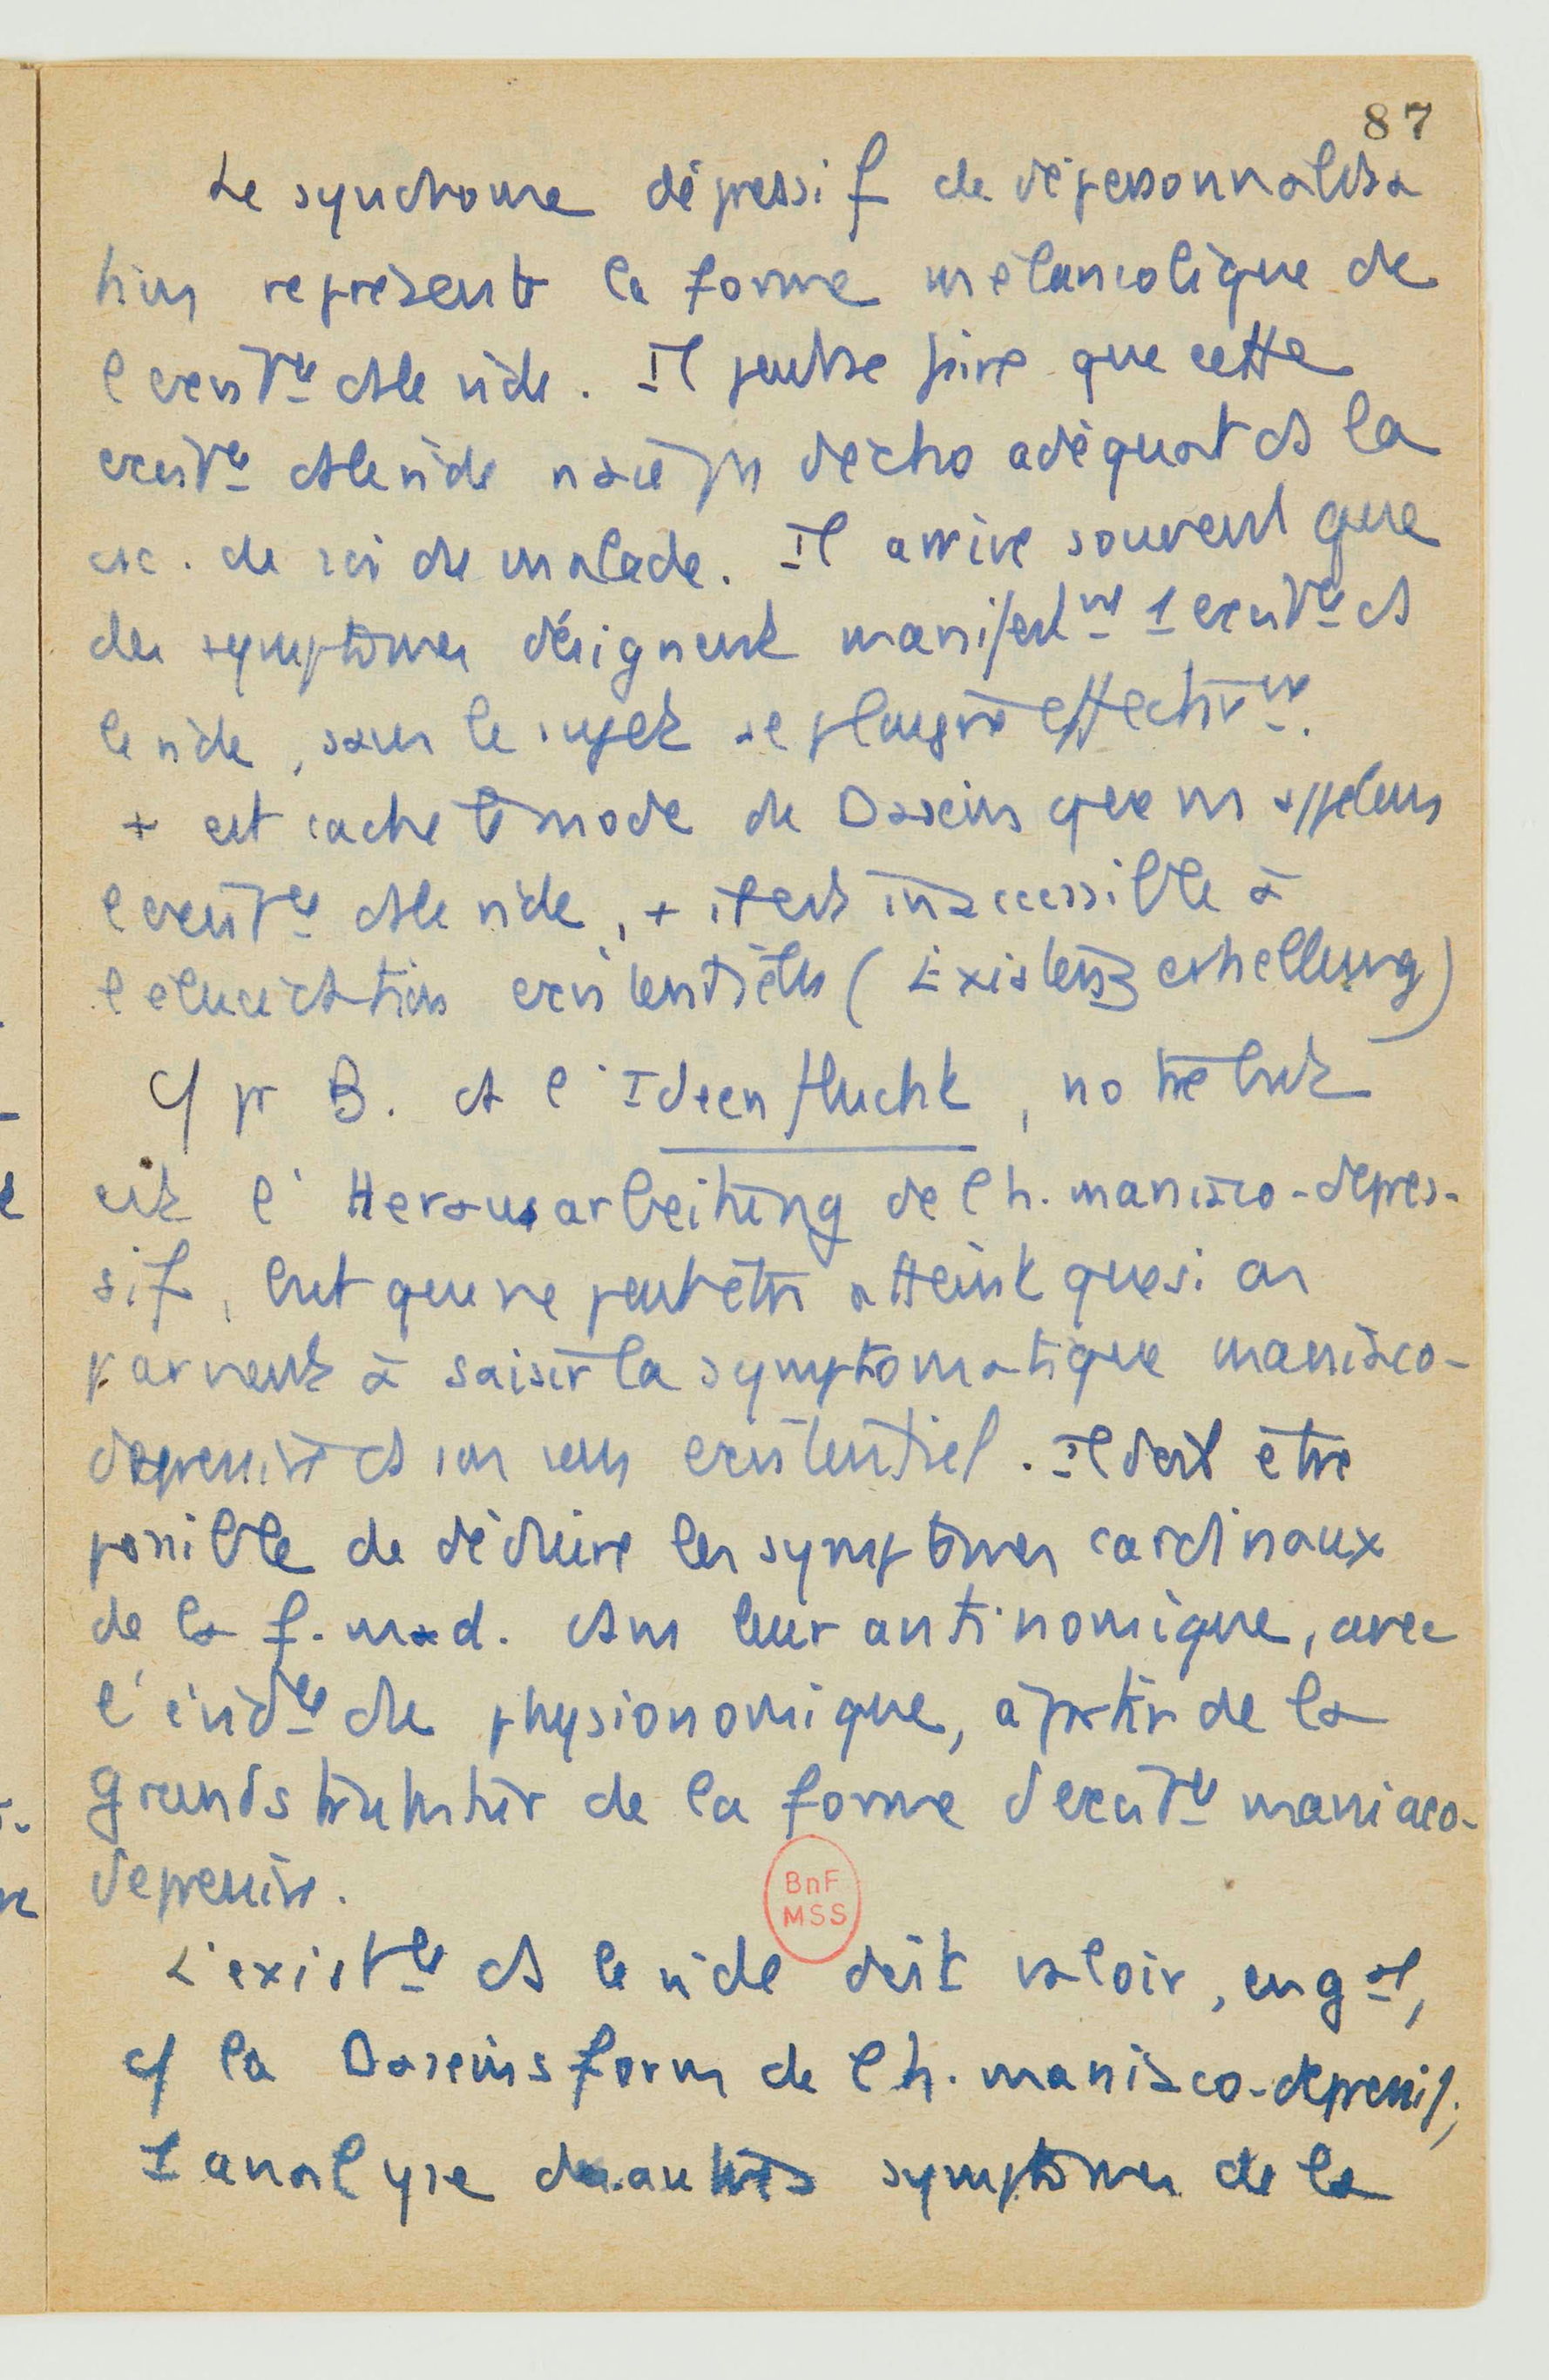 87
Le syndrome dépressif de dépersonnalisa
tion représente la forme mélancolique de
l'exist^ce ds le vide. Il peut se faire que cette
exist^ce ds le vide n'ait pas d'écho adéquat ds la
csc. de soi du malade. Il arrive souvent que
des symptômes désignent manifest^mt 1 exist^ce ds
le vide, sans le sujet se plaigne effectiv^mt.
+ est caché le mode de Dasein que ns appelons
l'exist^ce ds le vide, + il est inaccessible à
l'élucidation existentielle (Existenzerhellung)
Cf pr B. ds l'Ideenflucht, notre but
est l'Herausarbeitung de l'h. maniaco-dépres-
sif, but qui ne peut être atteint que si on
parvient à saisir la symptomatique maniaco-
dépressive ds son sens existentiel. Il doit être
possible de déduire les symptômes cardinaux
de la f. mad. ds leur antinomique, avec
l'évid^ce du physionomique, à partir de la
grundstruktur de la forme d'exist^ce maniaco-
dépressive.
BnF
MSS
L'exist^ce ds le vide doit valoir, en g^al,
cf la Daseinsform de l'h. maniaco-dépressif;
1 analyse des autres symptômes de la